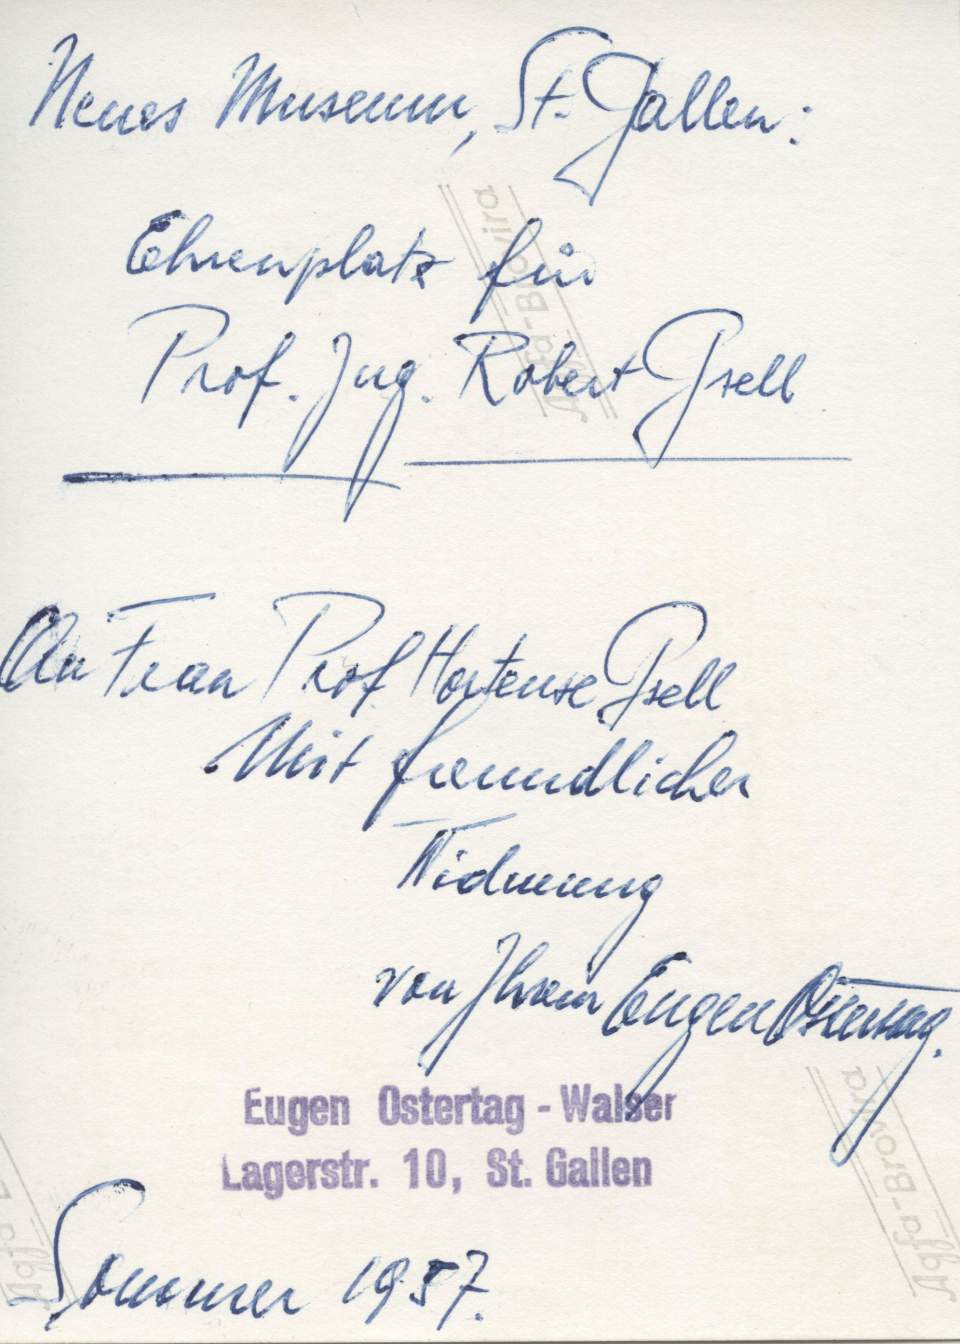 Neues Museum, St. Gallen:
Ehrenplatz für
Prof. Jng. Robert Gsell
An Frau Prof Hortense Gsell
Mit freundlicher
Widmung
von Ihrem Eugen Ostertag.
Eugen Ostertag - Walser
Lagerstr. 10, St. Gallen
Sommer 1957.
Agfa-Brovira
Agfa-Brovira
Agfa-B